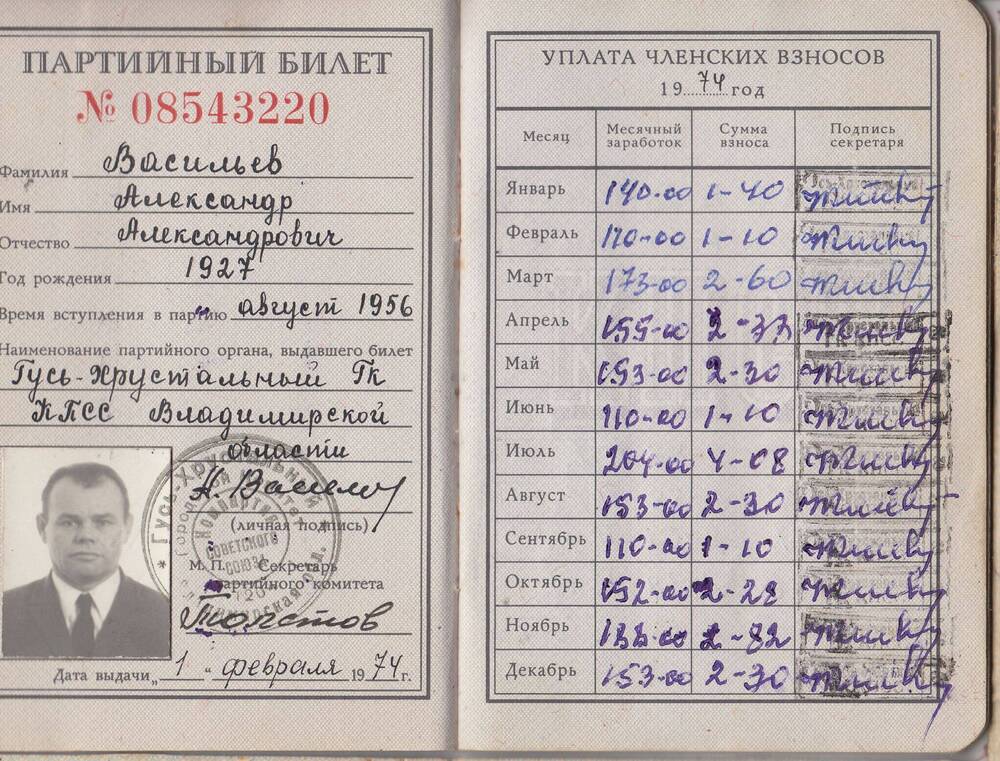 ПАРТИЙНЫЙ БИЛЕТ
№ 08543220
Фамилия Васильев
Имя Александр
Отчество Александрович
Год рождения 1927
Время вступления в партию август 1956
Наименование партийного органа, выдавшего билет
Гусь-Хрустальный ГК
КПСС Владимирской
области
(личная подпись)
М. П. Секретарь
партийного комитета
Толстов
Дата выдачи „1" февраля 1974 г.
УПЛАТА ЧЛЕНСКИХ ВЗНОСОВ
1974 год
Месяц Месячный заработок Сумма взноса Подпись секретаря
Январь 140-00 1-40
Февраль 110-00 1-10
Март 173-00 2-60
Апрель 155-00 2-33
Май 153-00 2-30
Июнь 110-00 1-10
Июль 204-00 4-08
Август 153-00 2-30
Сентябрь 110-00 1-10
Октябрь 152-00 2-28
Ноябрь 2-82
Декабрь 153-00 2-30